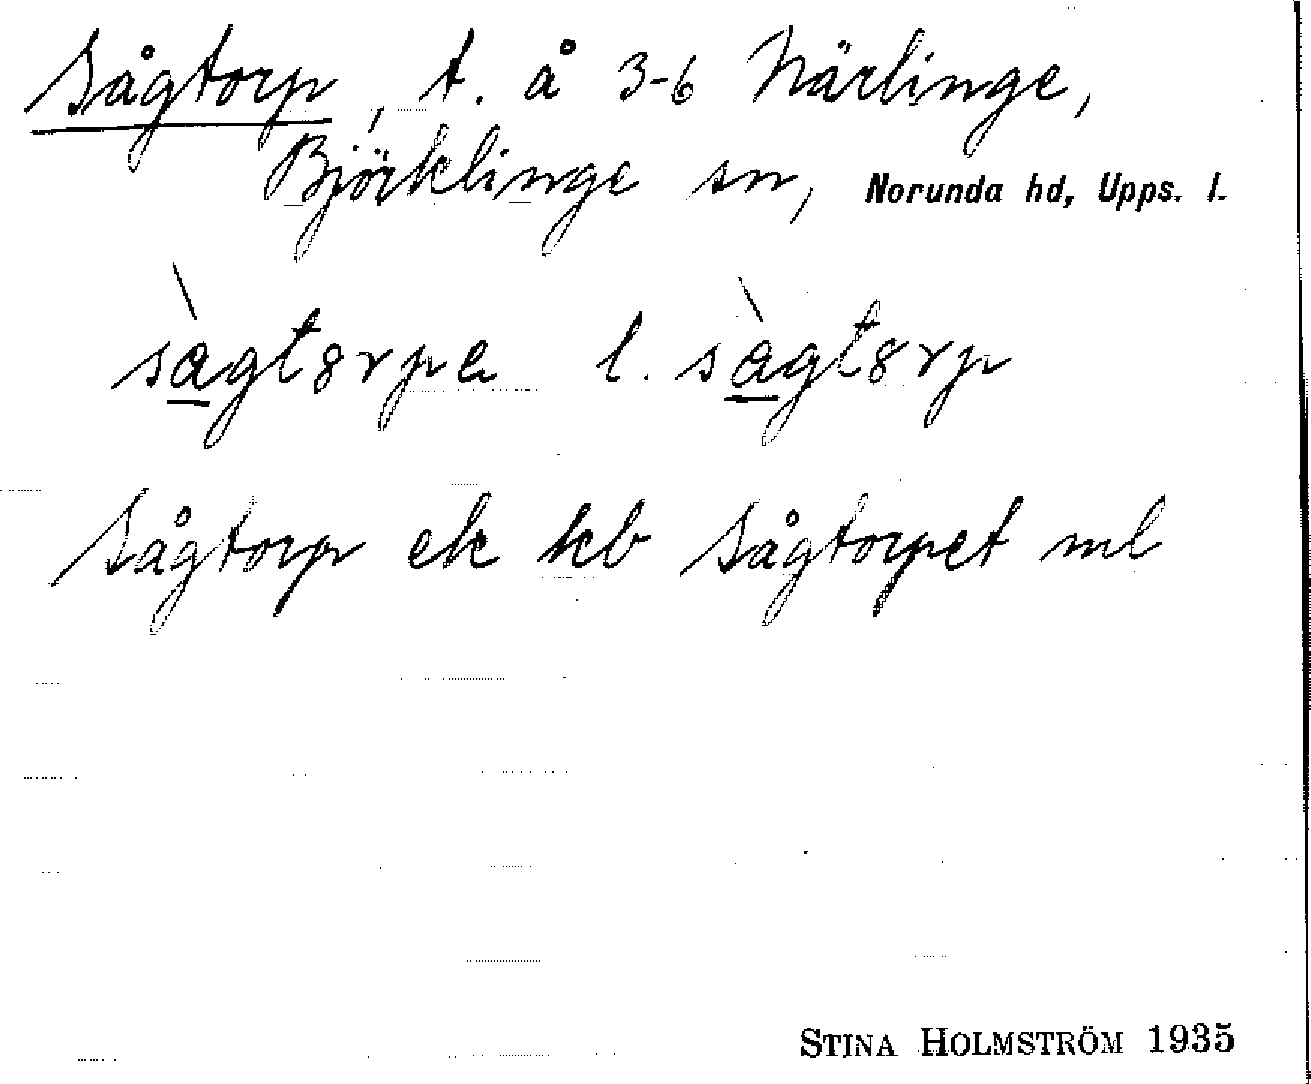 Sågtorp, t. å 3-6 Närlinge,
Björklinge sn, Norunda hd, Upps. l.
sàgt8rpa l. sàgt8rp
Sågtorp ek kb Sågtorpet ml
STINA HOLMSTRÖM 1935